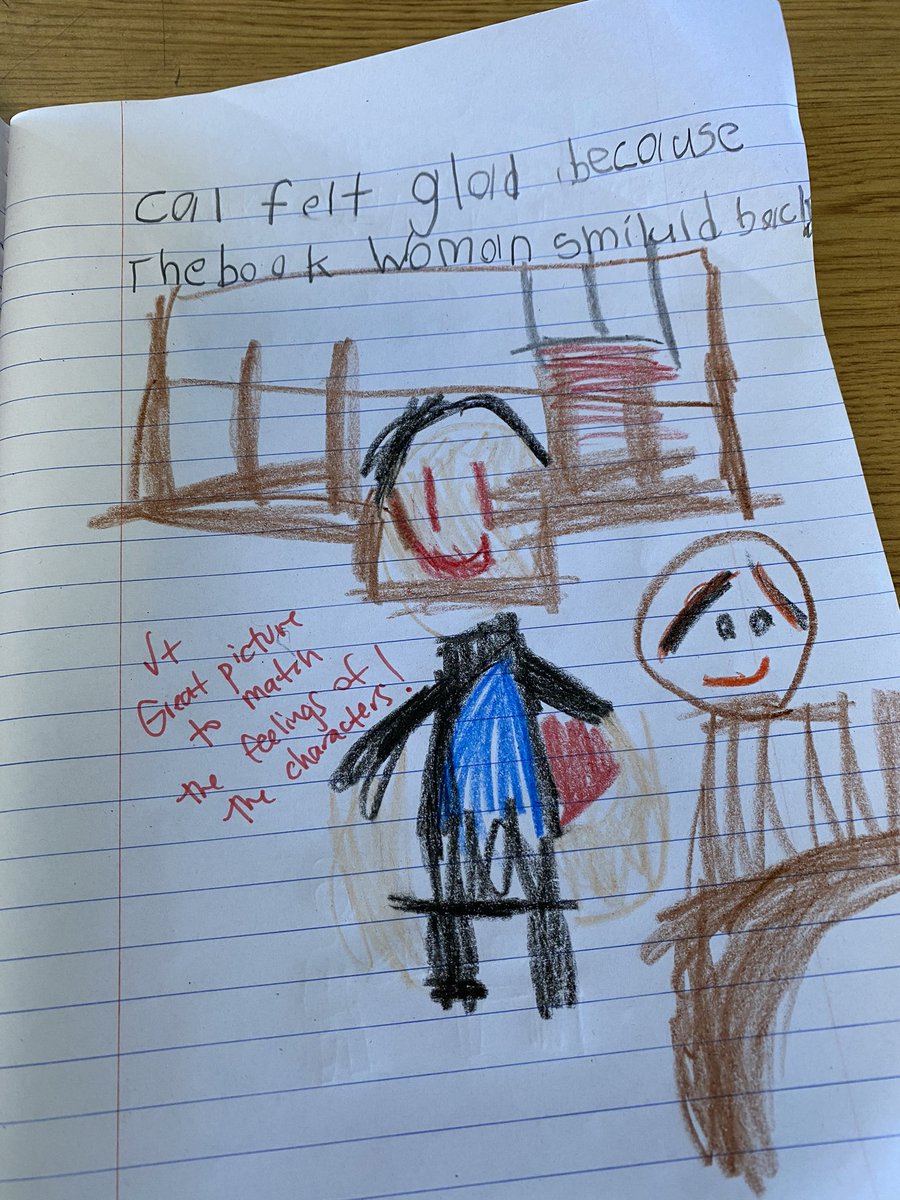 Cal felt glad because
The book Woman smiluld back
√+
Great picture
to match
the feelings of
the characters!